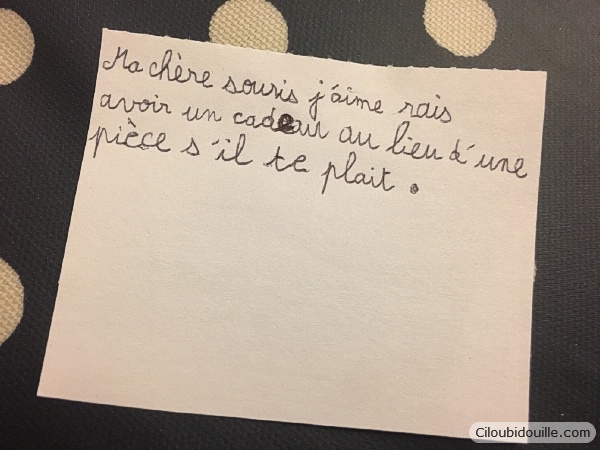 Ma chère souris j'aime rais
avoir un cadeau au lieu d'une
pièce s'il te plait.
Ciloubidouille.com